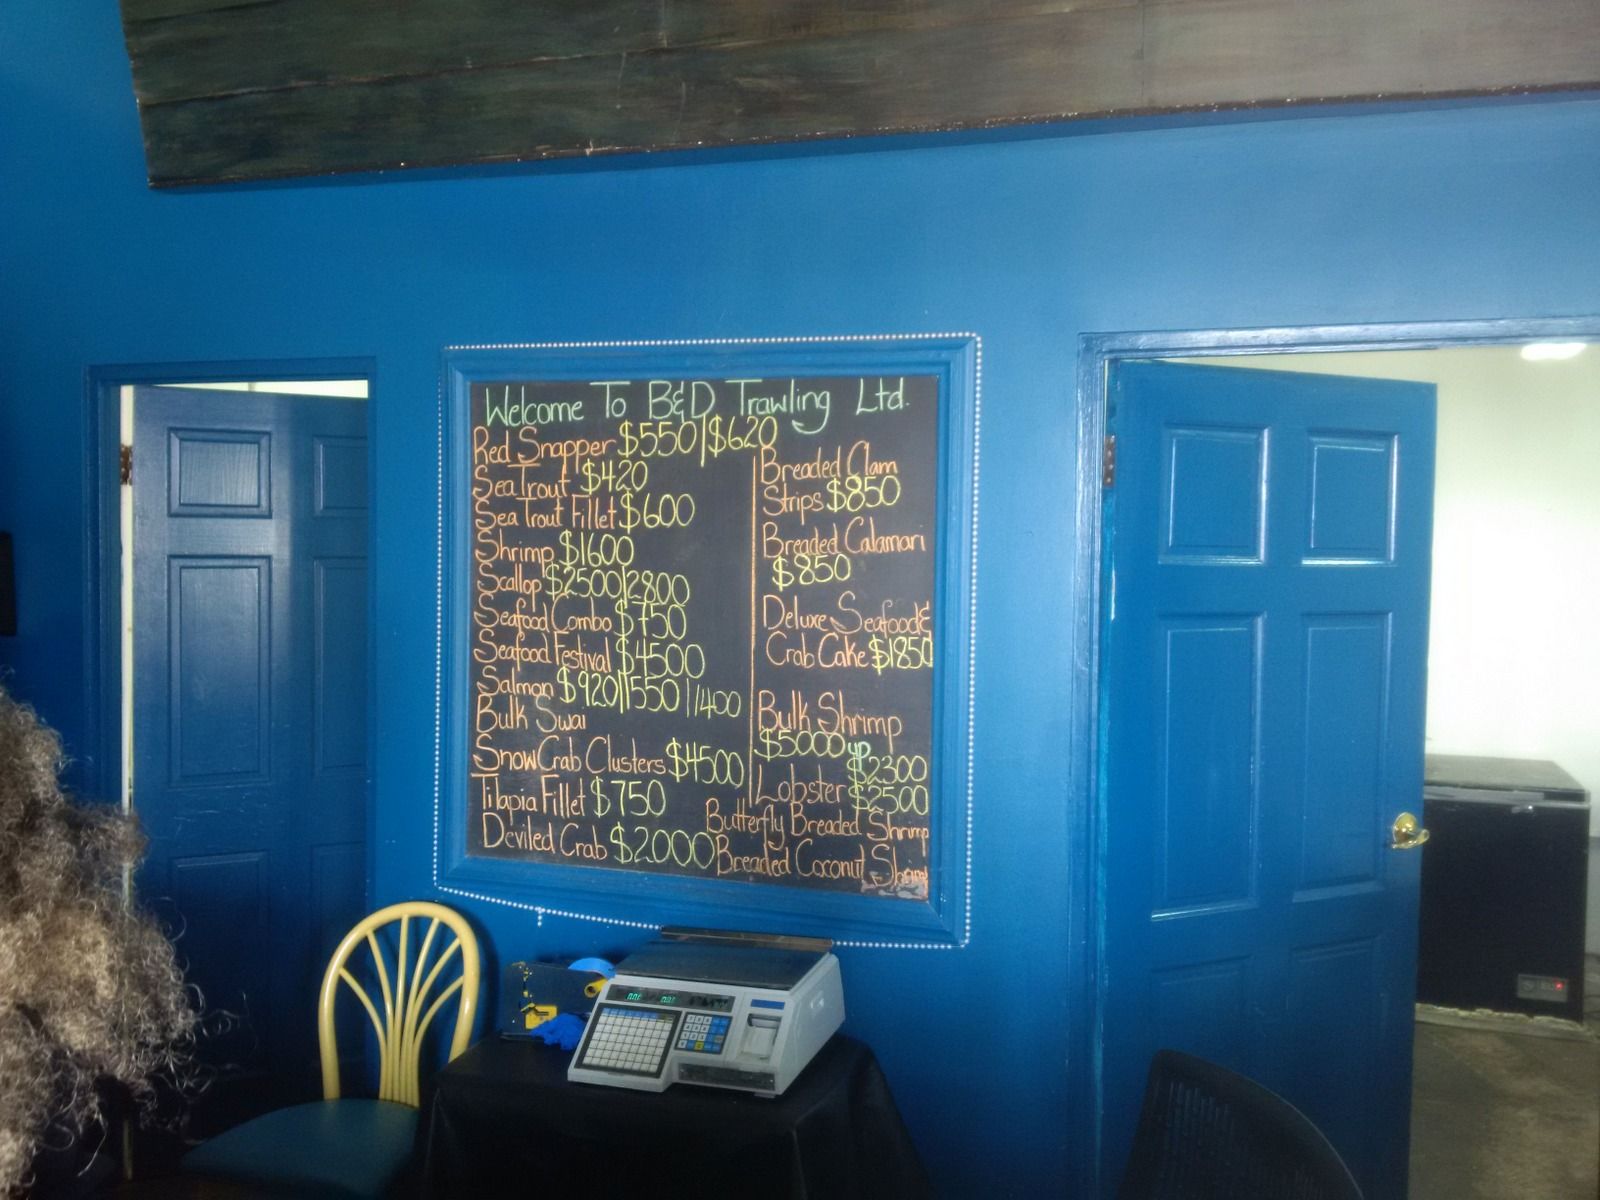 Welcome To B&D Trawling Ltd.
Red Snapper $550|$620
Sea Trout $420
Sea Trout Fillet $600
Shrimp $1600
Scallop $2500|2800
Seafood Combo $750
Seafood Festival $4500
Salmon $920|1550|1400
Bulk Swai
Snow Crab Clusters $4500
Tilapia Fillet $750
Deviled Crab $2000
Breaded Clam
Strips $850
Breaded Calamari
$850
Deluxe Seafood &
Crab Cake $1850
Bulk Shrimp
$5000 up
$2300
Lobster $2500
Butterfly Breaded Shrimp
Breaded Coconut Shrimp